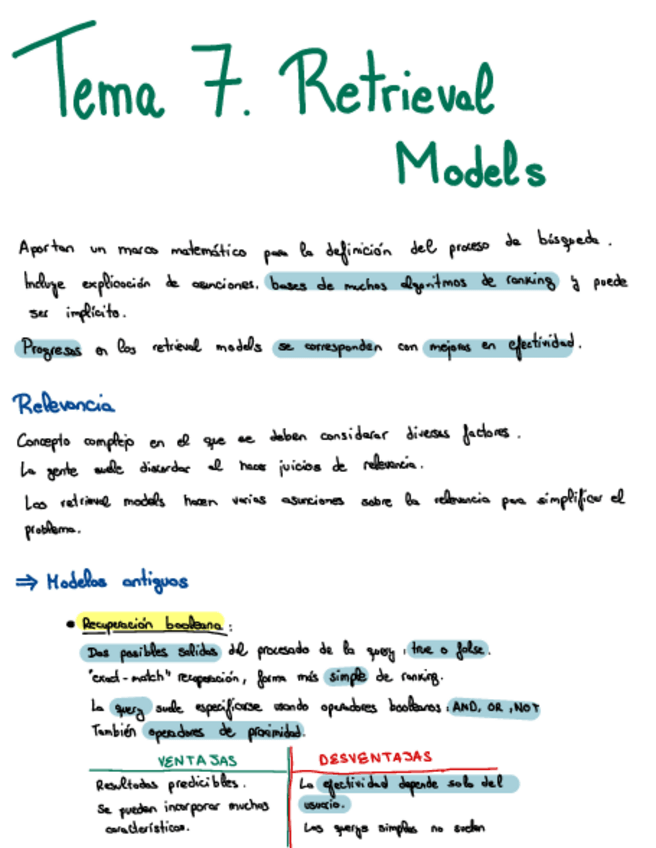 Tema 7. Retrieval
Models
Aportan un marco matemático para la definición del proceso de búsqueda.
Incluye explicación de asunciones, bases de muchos algoritmos de ranking y puede
ser implícito.
Progresos en los retrieval models se corresponden con mejoras en efectividad.
Relevancia
Concepto complejo en el que se deben considerar diversos factores.
La gente suele discordar al hacer juicios de relevancia.
Los retrieval models hacen varias asunciones sobre la relevancia para simplificar el
problema.
⇒ Modelos antiguos
• Recuperación booleana:
Dos posibles salidas del procesado de la query, true o false.
"exact-match" recuperación, forma más simple de ranking.
La query suele especificarse usando operadores booleanos: AND, OR, NOT
También operadores de proximidad.
VENTAJAS DESVENTAJAS
Resultados predicibles. La efectividad depende solo del
Se pueden incorporar muchas usuario.
características. Las querys simples no suelen